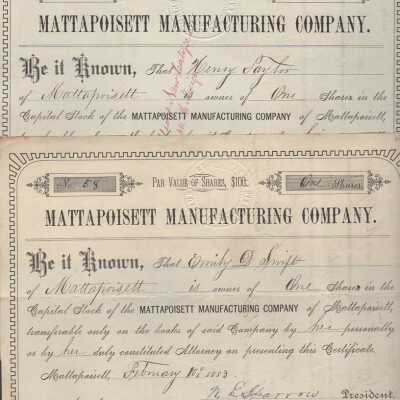 MATTAPOISETT MANUFACTURING COMPANY.
Be it Known, That Henry Taylor
of Mattapoisett is owner of One Shares in the
Capital Stock of the MATTAPOISETT MANUFACTURING COMPANY of Mattapoisett,
No. 58 PAR VALUE OF SHARES, $100. One Shares
MATTAPOISETT MANUFACTURING COMPANY.
Be it Known, That Emily D Swift
of Mattapoisett is owner of One Shares in the
Capital Stock of the MATTAPOISETT MANUFACTURING COMPANY of Mattapoisett,
transferable only on the books of said Company by her personally
or by her duly constituted Attorney on presenting this Certificate.
Mattapoisett, February 10 1883
N. L. Sparrow President.